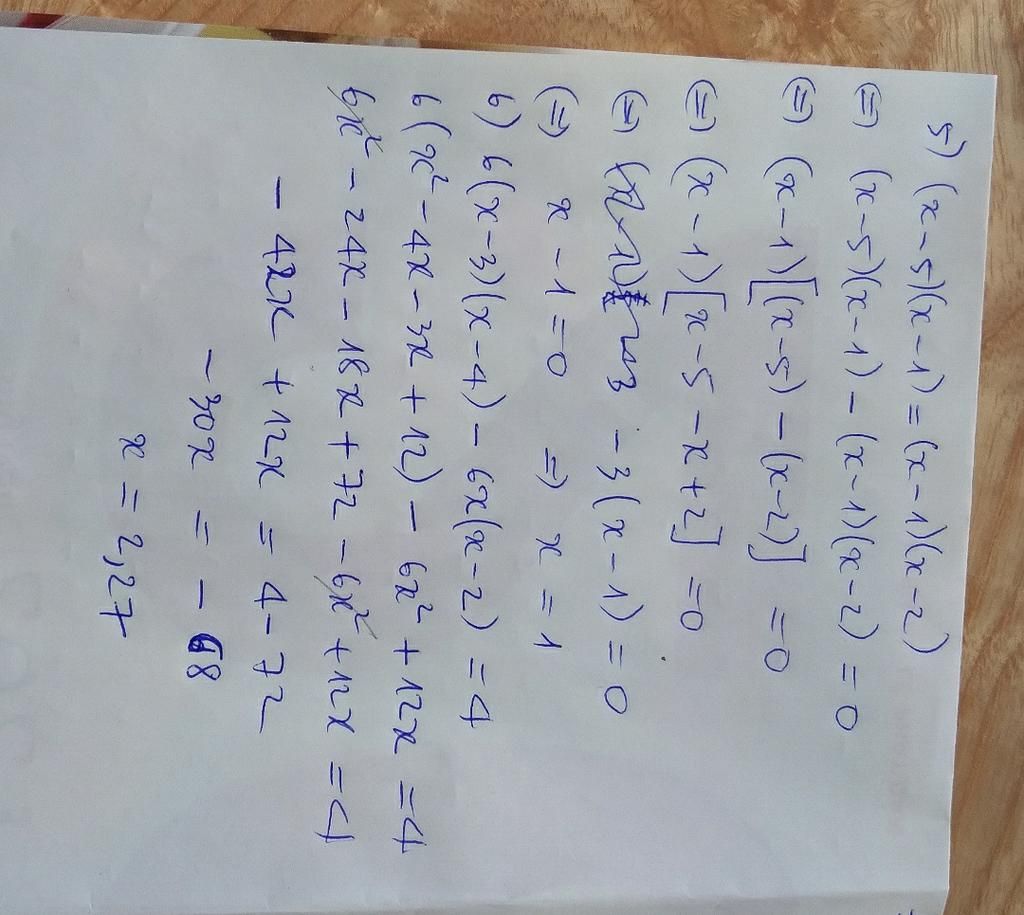 5) (x-5)(x-1) = (x-1)(x-2)
(=) (x-5)(x-1) - (x-1)(x-2) = 0
(=) (x-1)[(x-5) - (x-2)] = 0
(=) (x-1)[x-5-x+2] = 0
(=) -3(x-1) = 0
(=) x-1=0 => x = 1
6) 6(x-3)(x-4) - 6x(x-2) = 4
6(x²-4x-3x+12) - 6x² + 12x = 4
6x² - 24x - 18x + 72 - 6x² + 12x = 4
- 42x + 12x = 4-72
- 30x = - 68
x = 2,27